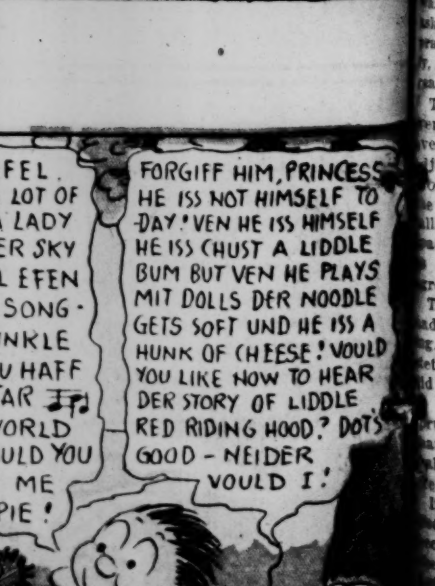 FEL.
LOT OF
A LADY
ER SKY
L EFEN
SONG-
NKLE
U HAFF
TAR
WORLD
ULD YOU
ME
PIE!
FORGIFF HIM, PRINCESS
HE ISS NOT HIMSELF TO
-DAY! VEN HE ISS HIMSELF
HE ISS CHUST A LIDDLE
BUM BUT VEN HE PLAYS
MIT DOLLS DER NOODLE
GETS SOFT UND HE ISS A
HUNK OF CHEESE! VOULD
YOU LIKE NOW TO HEAR
DER STORY OF LIDDLE
RED RIDING HOOD? DOT'S
GOOD - NEIDER
VOULD I!